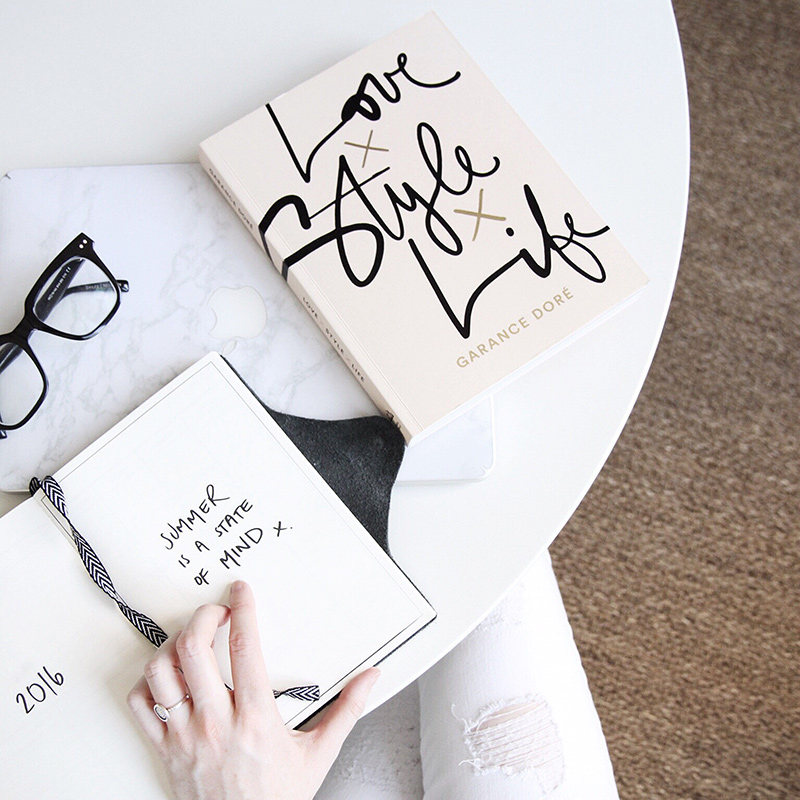 Love
x
Style
x
Life
GARANCE DORÉ
GARANCE DORÉ
LOVE STYLE LIFE
SUMMER
IS A STATE
OF MIND x.
2016